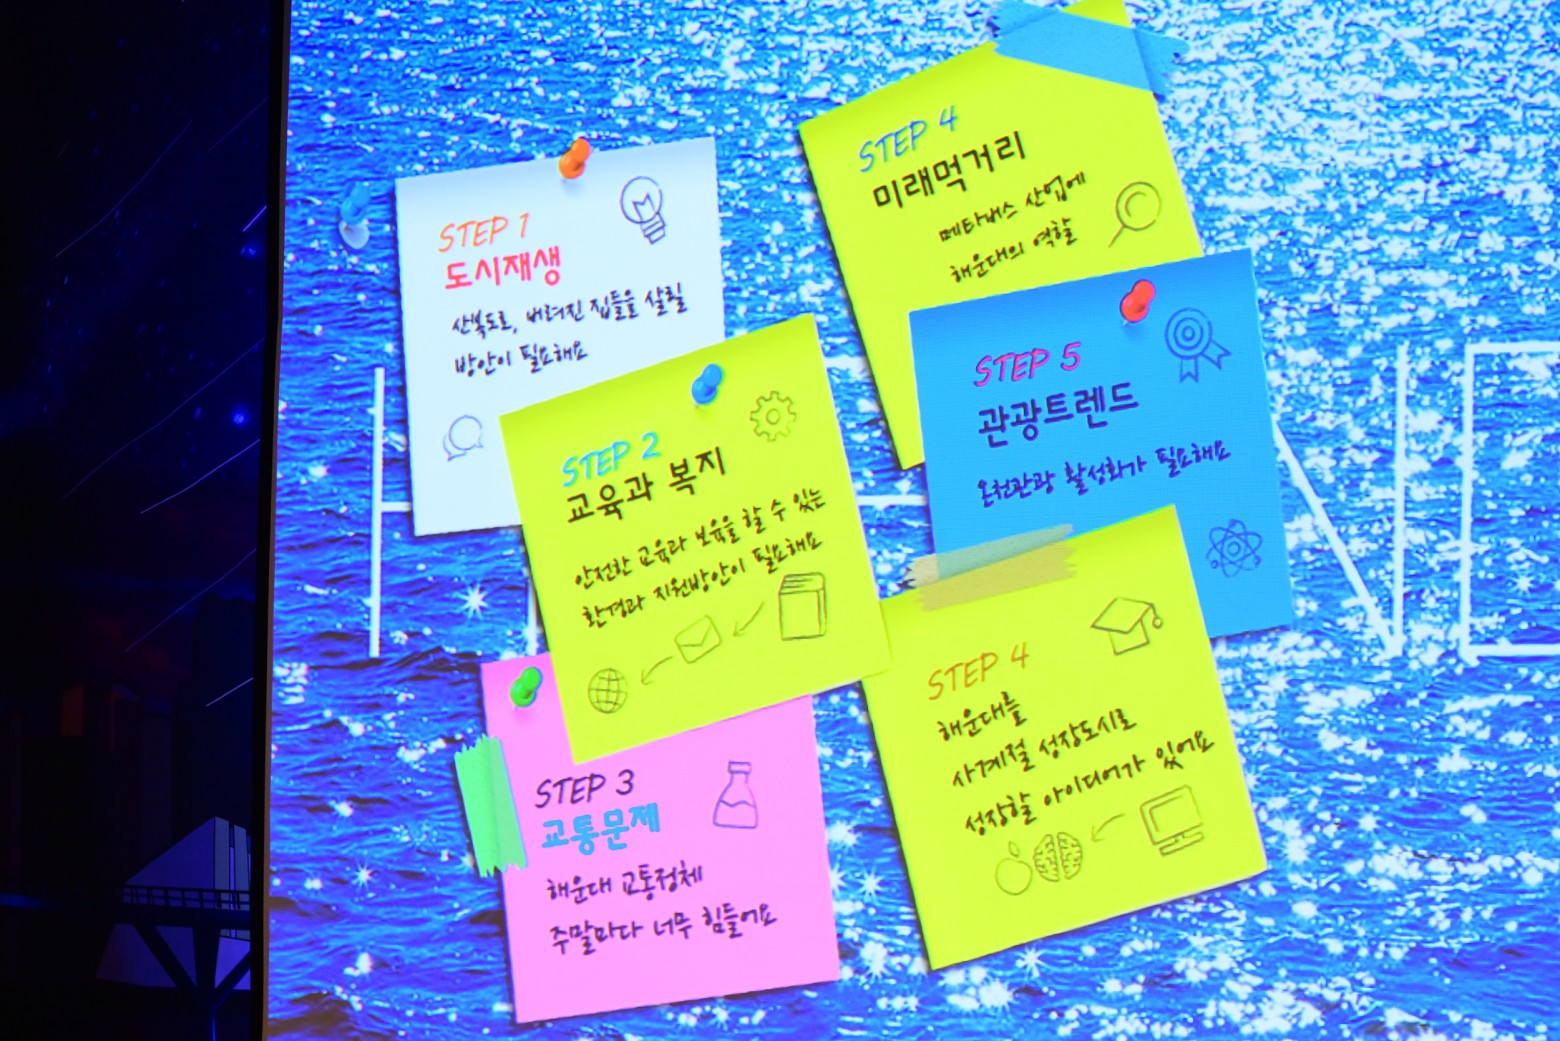 STEP 1
도시재생
산복도로, 버려진 집들을 살릴
방안이 필요해요
STEP 2
교육과 복지
안전한 교육과 보육을 할 수 있는
환경과 지원방안이 필요해요
STEP 3
교통문제
해운대 교통정체
주말마다 너무 힘들어요
STEP 4
미래먹거리
메타버스 산업에
해운대의 역할
STEP 5
관광트렌드
온천관광 활성화가 필요해요
STEP 4
해운대를
사계절 성장도시로
성장할 아이디어가 있어요